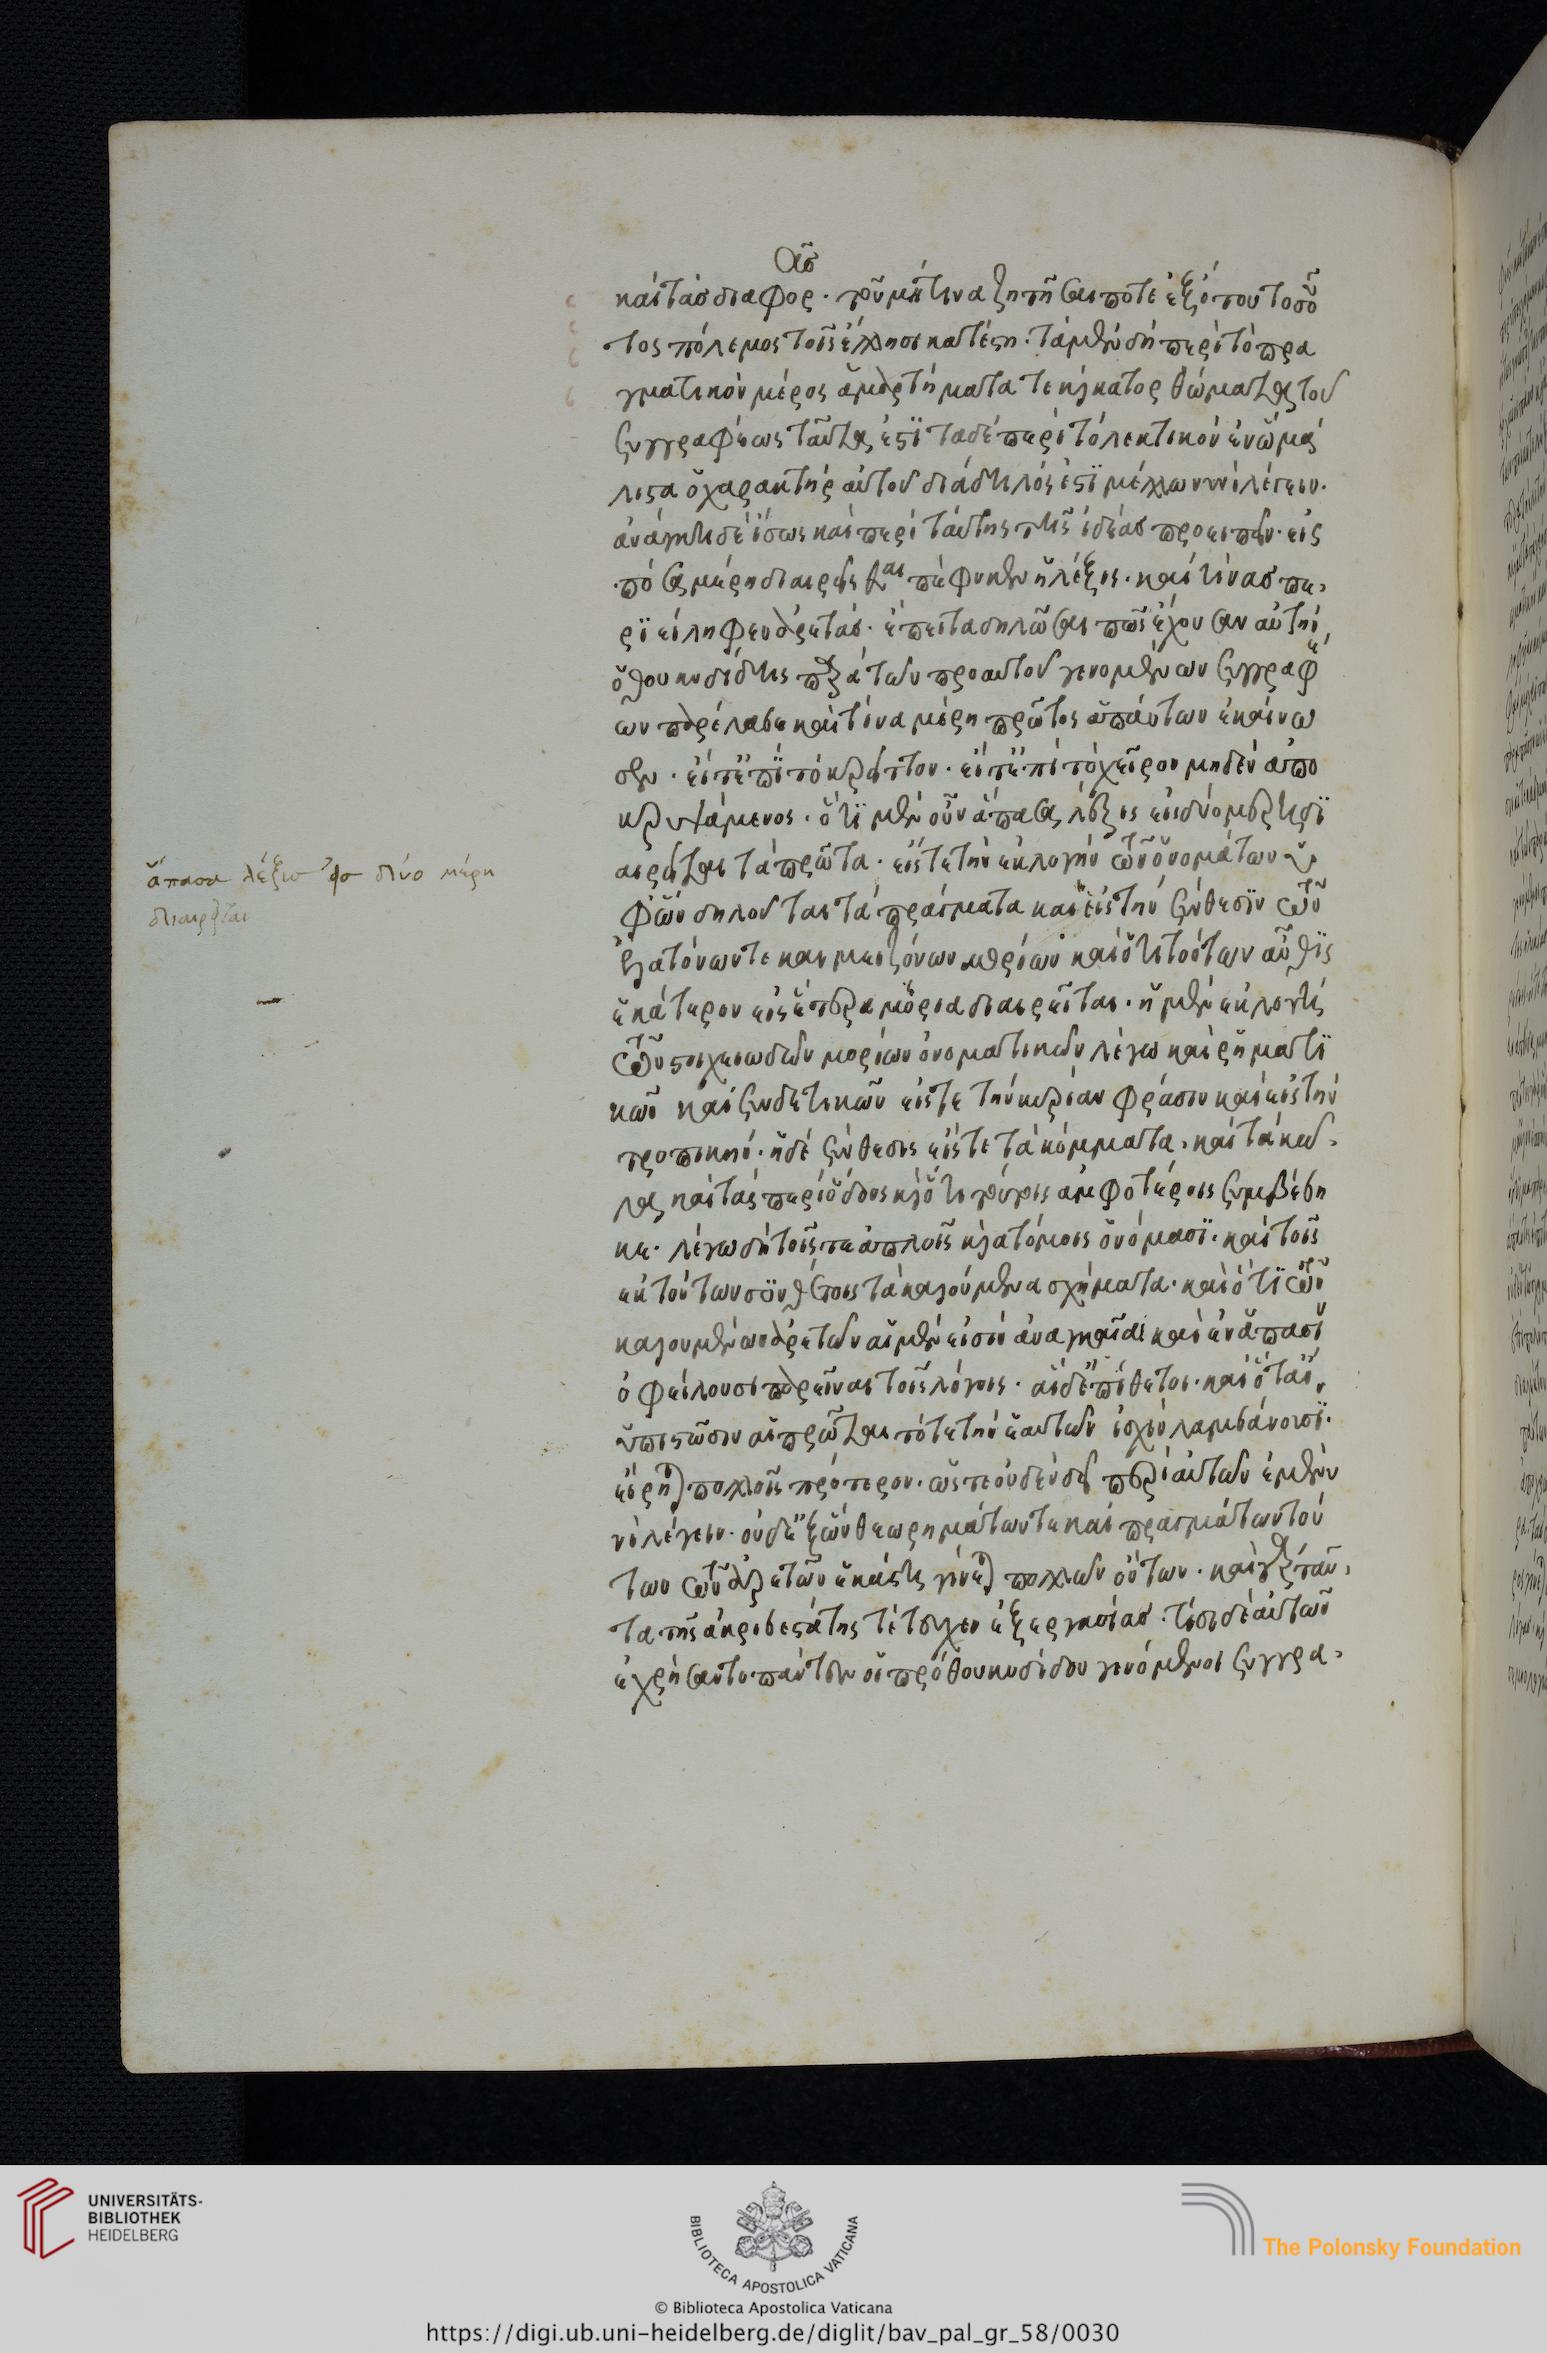 ὰς
καὶ τὰς διαφορ. τοῦ μή τινα ζητῆσαι ποτὲ ἐξ ὅτου τοσοῦ
τος πόλεμος τοῖς ἕλλησι κατέστη. τὰ μὲν δὴ περὶ τὸ πρα
γματικὸν μέρος ἁμαρτήματα τε καὶ κατορθώματα τοῦ
συγγραφέως ταῦτα ἐστϊ τὰ δὲ περὶ τὸ λεκτικὸν ἐν ᾧ μά
λιστα ὁ χαρακτὴρ αὐτοῦ διάδηλός ἐστϊ μέλλω νυνὶ λέγειν.
ἀνάγκη δὲ ἴσως καὶ περὶ ταύτης τῆς ἰδέας προειπεῖν. εἰς
πόσα μέρη διαιρεῖσθαι πέφυκεν ἡ λέξις. καὶ τίνας πε,
ρϊείληφεν ἀρετάς. ἔπειτα δηλῶσαι πῶς ἔχουσαν αὐτὴν,
ὁ θουκυδίδης παρὰ τῶν προ αυτοῦ γενομένων συγγραφέ
ων παρέλαβε καὶ τίνα μέρη πρῶτος ἁπάντων ἐκαίνω
σεν. εἴτ' ἐπϊ τὸ κρεῖττον. εἴτ' ἐπὶ τὸ χεῖρον μηδὲν ἀπο
κρυψάμενος. ὅτϊ μὲν οὖν ἅπασα λέξις εἰς δύο μέρη δϊ
αιρεῖται τὰ πρῶτα. εἴς τε τὴν ἐκλογὴν τῶν ὀνομάτων ὑ
φ' ὧν δηλοῦται τὰ πράγματα καὶ εἰς τὴν σύνθεσϊν τῶν
ἐλατόνων τε καὶ μειζόνων μορίων καὶ ὅτι τούτων αὖθϊς
ἑκάτερον εἰς ἕτερα μόρια διαιρεῖται. ἡ μὲν ἐκλογὴ
τῶν στοιχειωδῶν μορίων ὀνοματικῶν λέγω καὶ ῥηματϊ
κῶν καὶ συνδετικῶν εἴς τε τὴν κυρίαν φράσιν καὶ εἰς τὴν
τροπικήν. ἡ δὲ σύνθεσις εἴς τε τὰ κόμματα. καὶ τὰ κῶ,
λα, καὶ τὰς περιόδους καὶ ὅτι τούτοις ἀμφοτέροις συμβέβη
κε. λέγω δὴ τοῖς τε ἁπλοῖς καὶ ατόμοις ὀνόμασϊ. καὶ τοῖς
ἐκ τούτων συνθέτοις τὰ καλούμενα σχήματα. καὶ ὅτϊ τῶν
καλουμένων ἀρετῶν αἱ μὲν εἰσὶν ἀναγκαῖαι καὶ ἐν ἅπασϊ
ὀφείλουσι παρεῖναι τοῖς λόγοις. αἱ δ' ἐπίθετοι. καὶ ὅταν,
ὑπεστῶσιν αἱ πρῶται τότε τὴν ἑαυτῶν ἰσχὺν λαμβάνουσϊ.
εἴρηται πολλοῖς πρότερον. ὥστε οὐδὲν δεῖ περὶ αὐτῶν ἐμὲ νυ
νὶ λέγειν. οὐδ' ἐξ ὧν θεωρημάτων τε καὶ πραγμάτων τού
των τῶν ἀρετῶν ἑκάστη γίνεται πολλῶν ὄντων. καὶ γὰρ ταῦ,
τα τῆς ἀκριβεστάτης τέτυχεν ἐξεργασίας. τίσι δὲ αὐτῶν
ἐχρήσαντο πάντες οἱ πρὸ θουκυδίδου γενόμενοι συγγρα,
ἅπασα λέξισ εἰσ δύο μέρη
διαιρεῖται
UNIVERSITÄTS-
BIBLIOTHEK
HEIDELBERG
BIBLIOTECA APOSTOLICA VATICANA
The Polonsky Foundation
© Biblioteca Apostolica Vaticana
https://digi.ub.uni-heidelberg.de/diglit/bav_pal_gr_58/0030